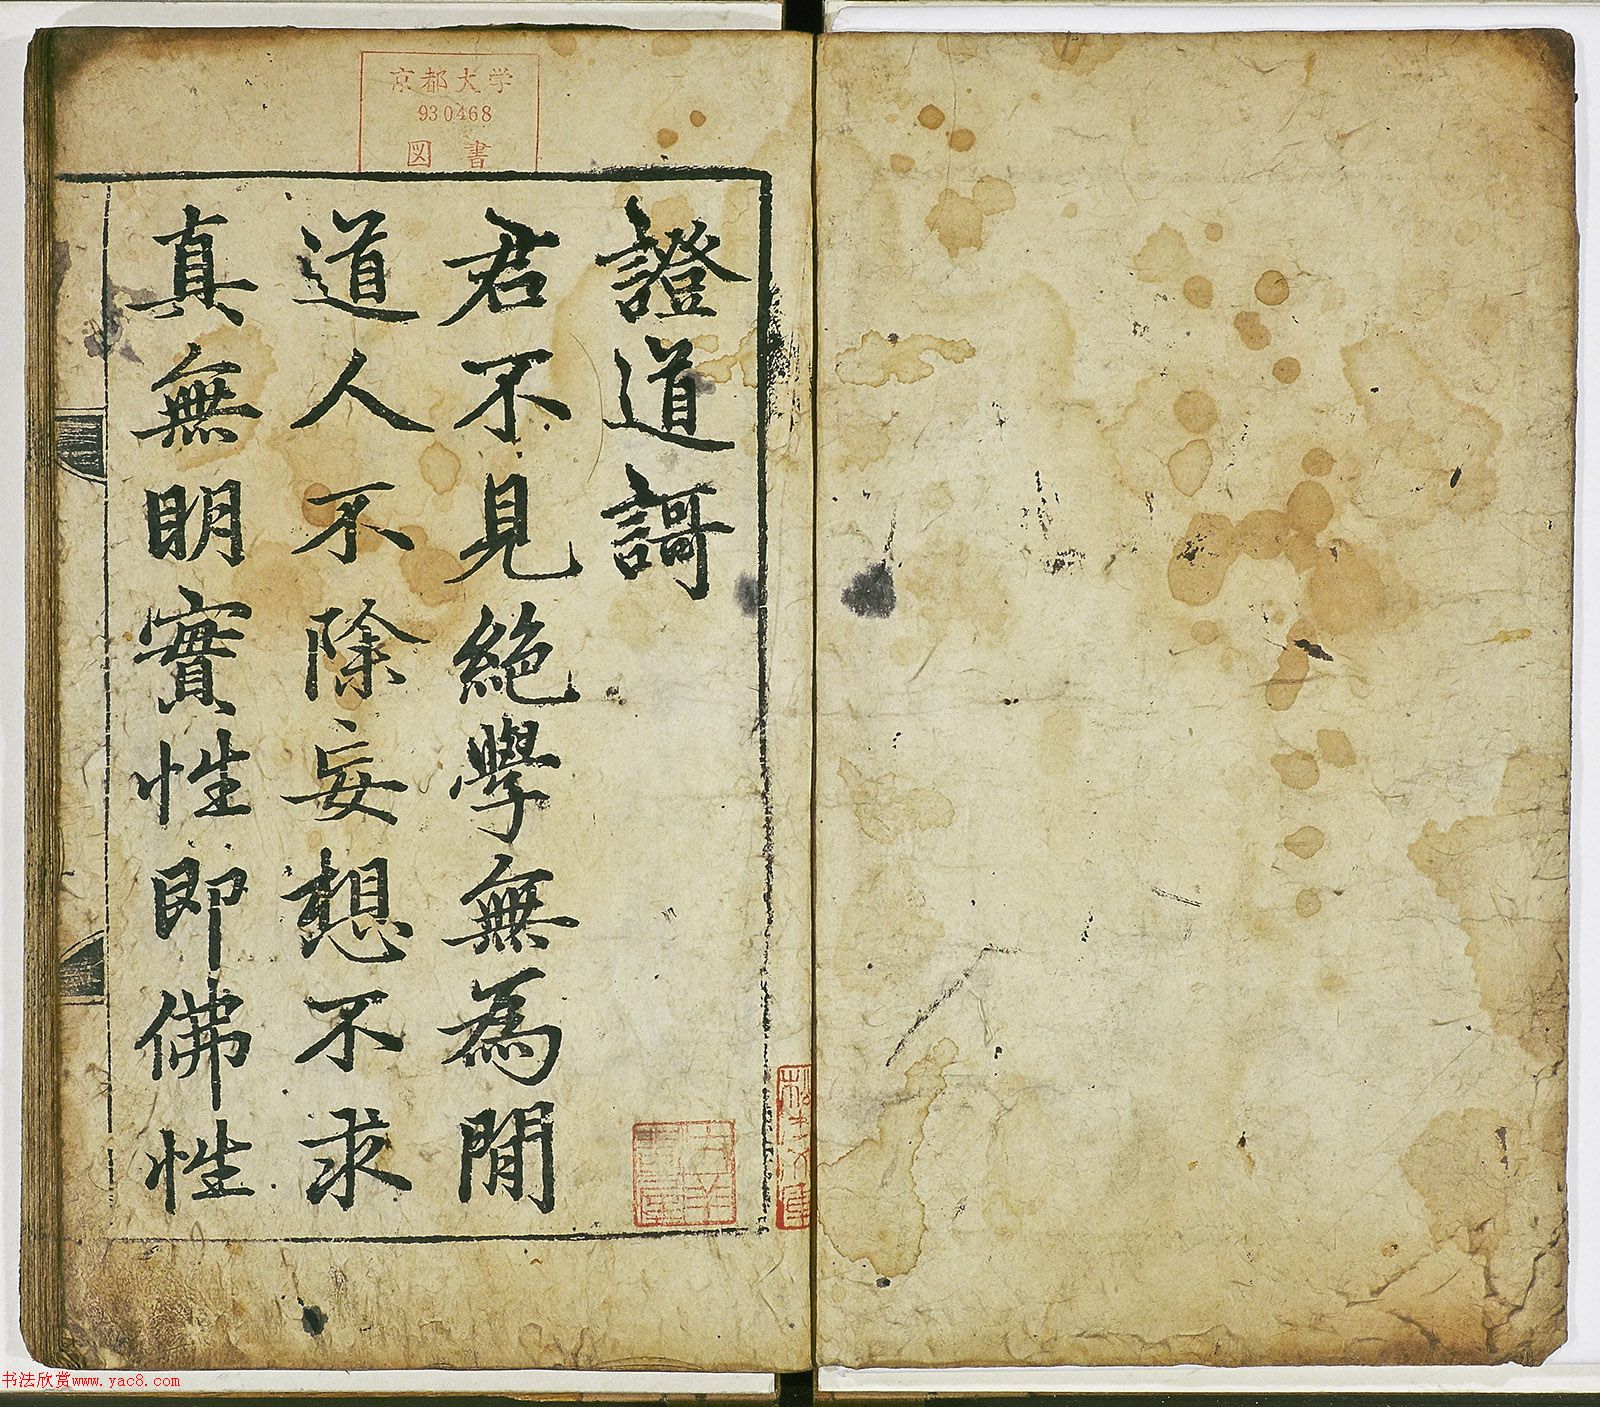 京都大学
930468
図書
證道謌
君不見絕學無為閒
道人不除妄想不求
真無明實性即佛性
书法欣赏www.yac8.com